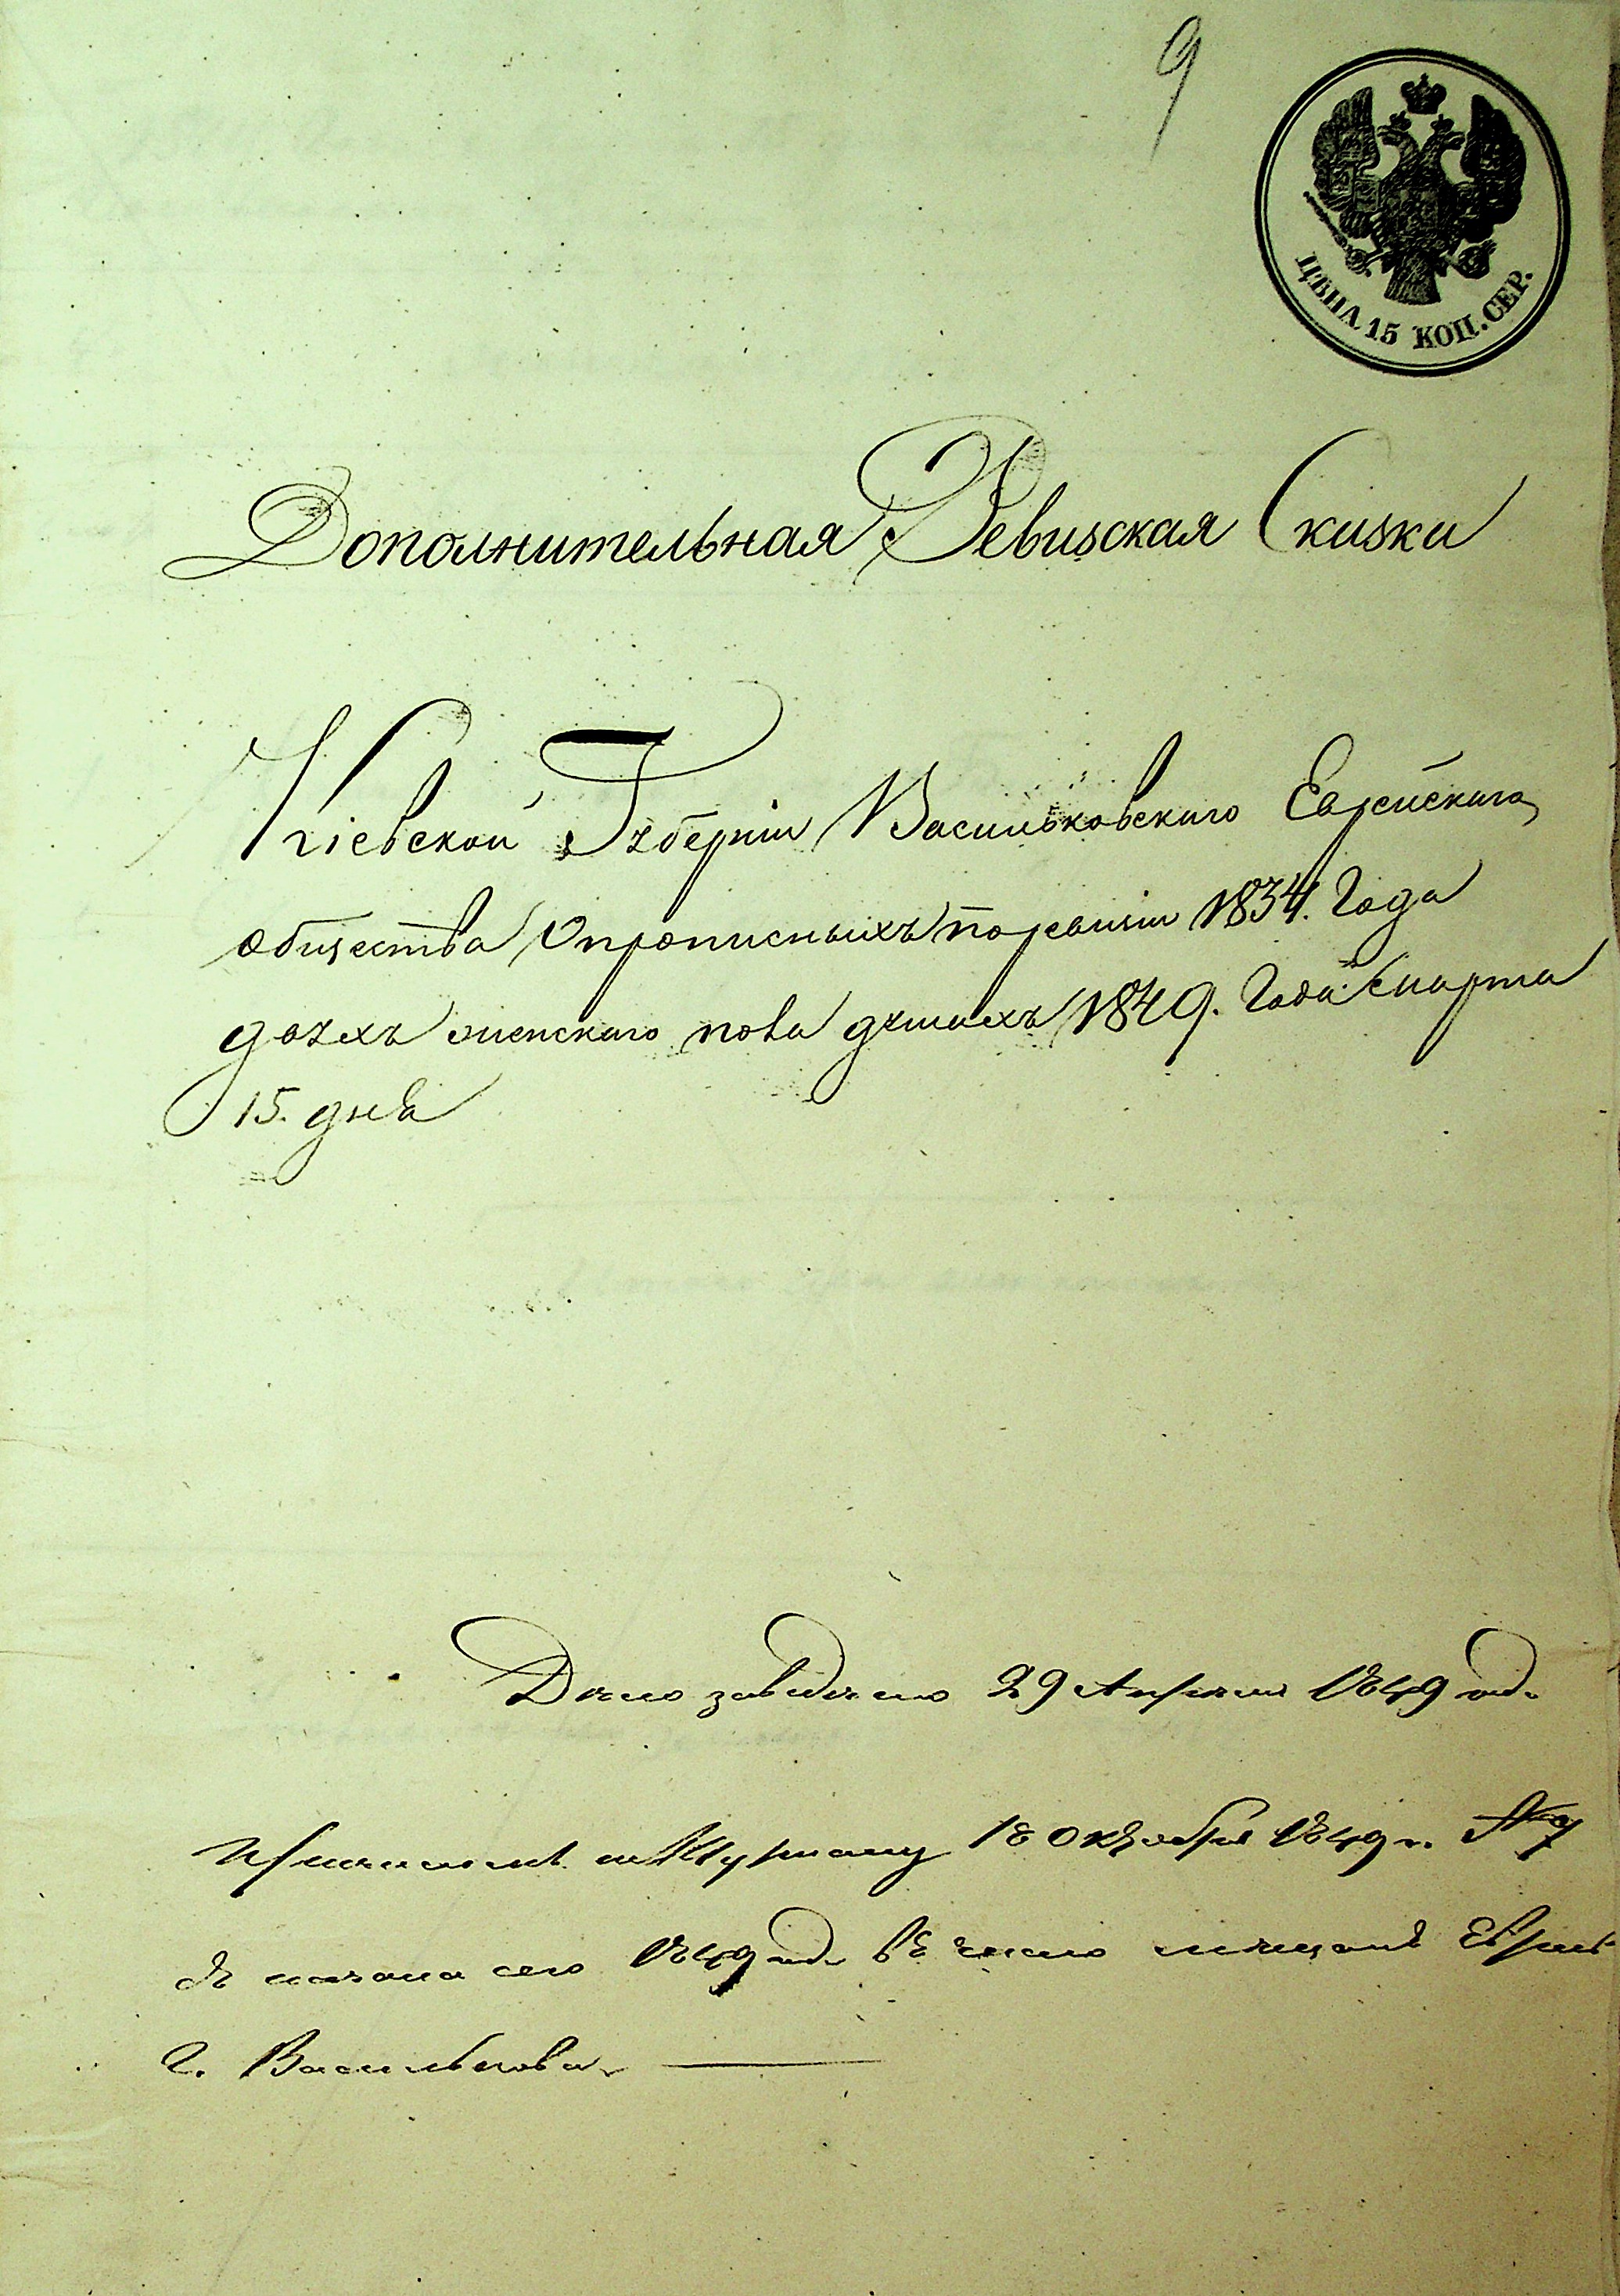 9
ЦѢНА 15 КОП. СЕР.
Дополнительная Ревизская Сказка
Кіевской Губерніи Васильковскаго Еврейскаго
общества о прописныхъ по ревизіи 1834. Года
двухъ женскаго пола душахъ 1849. Года Марта
15. дня
Дѣло заведено 29 Апрѣля 1849 года
Причислены по Журналу 18 Октября 1849 г.
съ начала сего 1849 года въ число мѣщанъ Евреевъ
г. Василькова